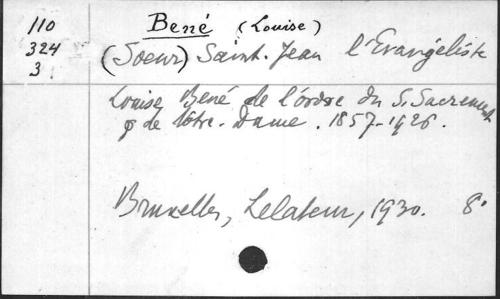 110 Bené (Louise)
324 (Soeur) Saint-Jean l'Evangéliste
3
Louise Bené de l'ordre du S. Sacrement
& de Nôtre-Dame. 1857-1926.
Bruxelles, Lelateur, 1930. 8°